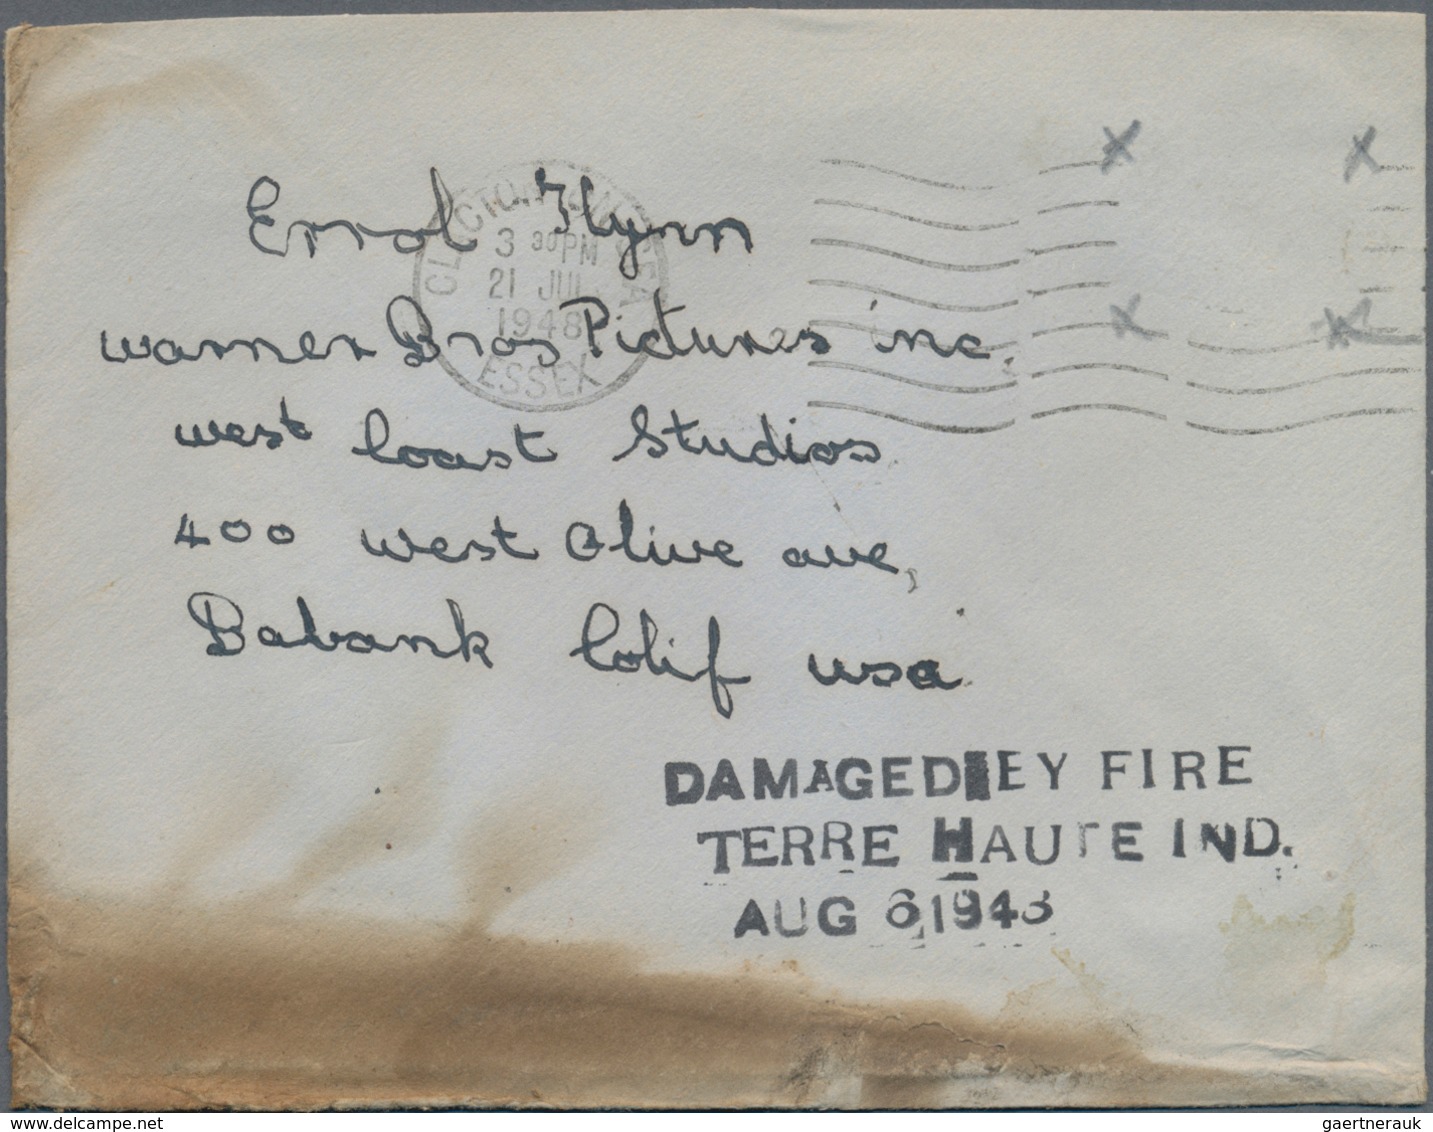 Errol Flynn
Warner Bros Pictures inc.
west Coast Studios
400 west Olive ave,
Babank Colif usa
CLACTON-ON-SEA
3 30PM
21 JUL
1948
ESSEX
DAMAGED BY FIRE
TERRE HAUTE IND.
AUG 6 1948
delcampe.net
gaertnerauk